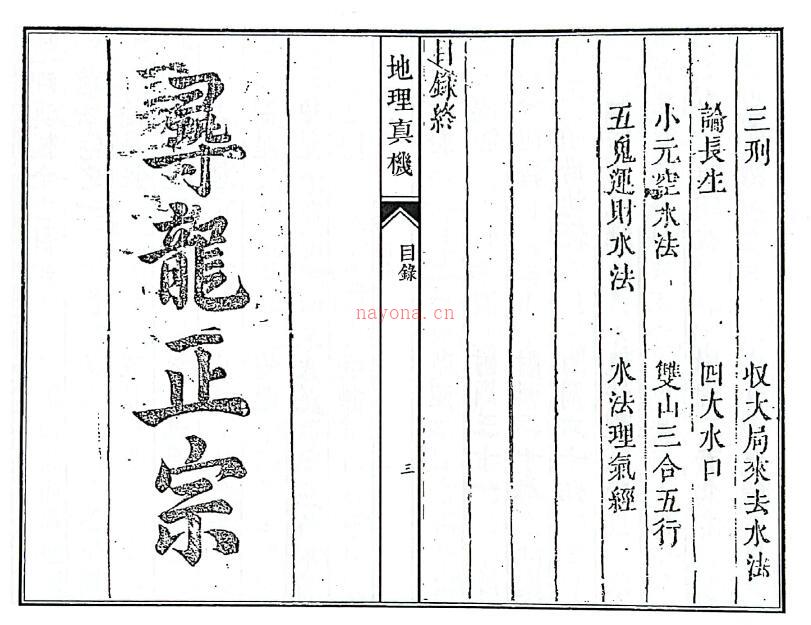 三刑
收大局來去水法
論長生
四大水口
小元空水法
雙山三合五行
五鬼運財水法
水法理氣經
目錄終
地理真機
目錄
三
尋龍正宗
nayona.cn